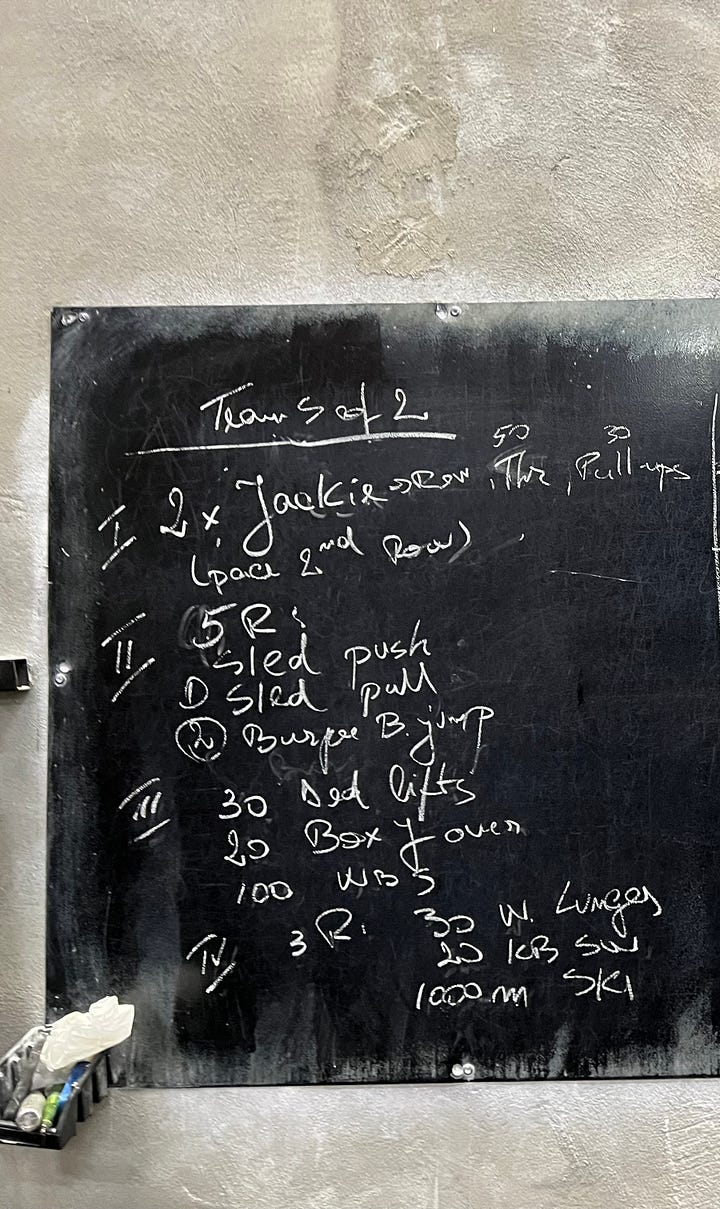 Teams of 2
50 30
I 2x Jackie → Row, Thr, Pull-ups
(pace 2nd Row)
II 5 R:
Sled push
Sled pull
② Burpee B. jump
III 30 Ded lifts
20 Box J over
100 WBS
IV 3 R: 30 W. Lunges
20 KB SW
1000 m SKI